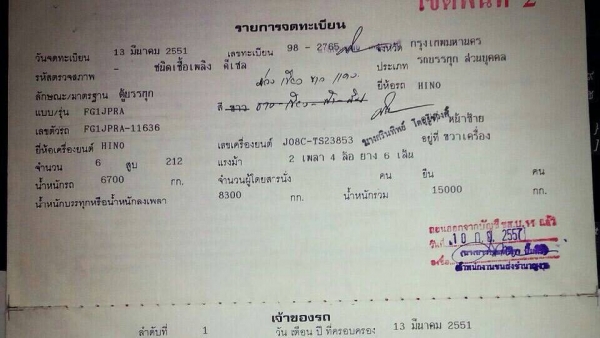 เขตพื้นที่ 2
รายการจดทะเบียน
วันจดทะเบียน 13 มีนาคม 2551 เลขทะเบียน 98 - 2765 จังหวัด กรุงเทพมหานคร
รหัสตรวจสภาพ - ชนิดเชื้อเพลิง ดีเซล ประเภท รถบรรทุก ส่วนบุคคล
ลักษณะ/มาตรฐาน ตู้บรรทุก สี ยี่ห้อรถ HINO
แบบ/รุ่น FG1JPRA
เลขตัวรถ FG1JPRA-11636 หน้าซ้าย
ยี่ห้อเครื่องยนต์ HINO เลขเครื่องยนต์ J08C-TS23853 อยู่ที่ ขวาเครื่อง
จำนวน 6 สูบ 212 แรงม้า 2 เพลา 4 ล้อ ยาง 6 เส้น
น้ำหนักรถ 6700 กก. จำนวนผู้โดยสารนั่ง คน ยืน คน
น้ำหนักบรรทุกหรือน้ำหนักลงเพลา 8300 กก. น้ำหนักรวม 15000 กก.
10 ก.ค. 2557
เจ้าของรถ
ลำดับที่ 1 วัน เดือน ปี ที่ครอบครอง 13 มีนาคม 2551